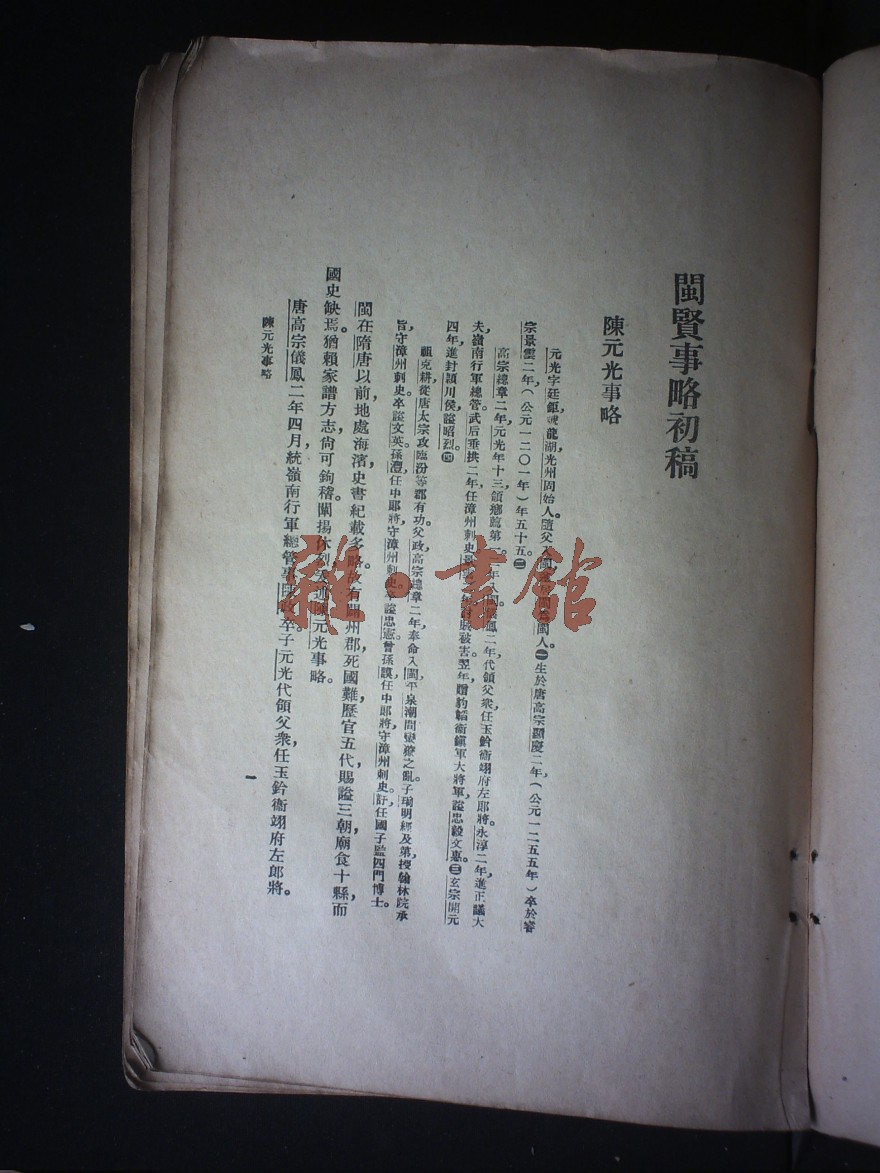 閩賢事略初稿
陳元光事略
元光字廷鉅，號龍湖，光州固始人。隨父入閩，閩人。㊀生於唐高宗顯慶二年，（公元一二五五年）卒於睿
宗景雲二年，（公元一二〇一年）年五十五。㊁
高宗總章二年，元光年十三，領鄉薦第一。年入閩。儀鳳二年，代領父衆，任玉鈐衞翊府左郎將。永淳二年，進正議大
夫，嶺南行軍總管。武后垂拱二年，任漳州刺史。賊被害。翌年，贈豹韜衞鎭軍大將軍，諡忠毅文惠。㊂玄宗開元
四年，進封潁川侯，諡昭烈。㊃
祖克耕，從唐太宗攻臨汾等郡有功。父政，高宗總章二年，奉命入閩，平泉潮間蠻獠之亂。子珦，明經及第，授翰林院承
旨，守漳州刺史。卒諡文英。孫灃，任中郎將，守漳州刺史。卒諡忠憲。曾孫謨，任中郎將，守漳州刺史。訏任國子監四門博士。
閩在隋唐以前，地處海濱，史書紀載多略。故有開州郡，死國難，歷官五代，賜諡三朝，廟食十縣，而
國史缺焉。猶賴家譜方志，尙可鉤稽。闡揚休烈，爰述陳元光事略。
唐高宗儀鳳二年四月，統嶺南行軍總管事陳政卒，子元光代領父衆，任玉鈐衞翊府左郎將。
陳元光事略
一
雜·書館